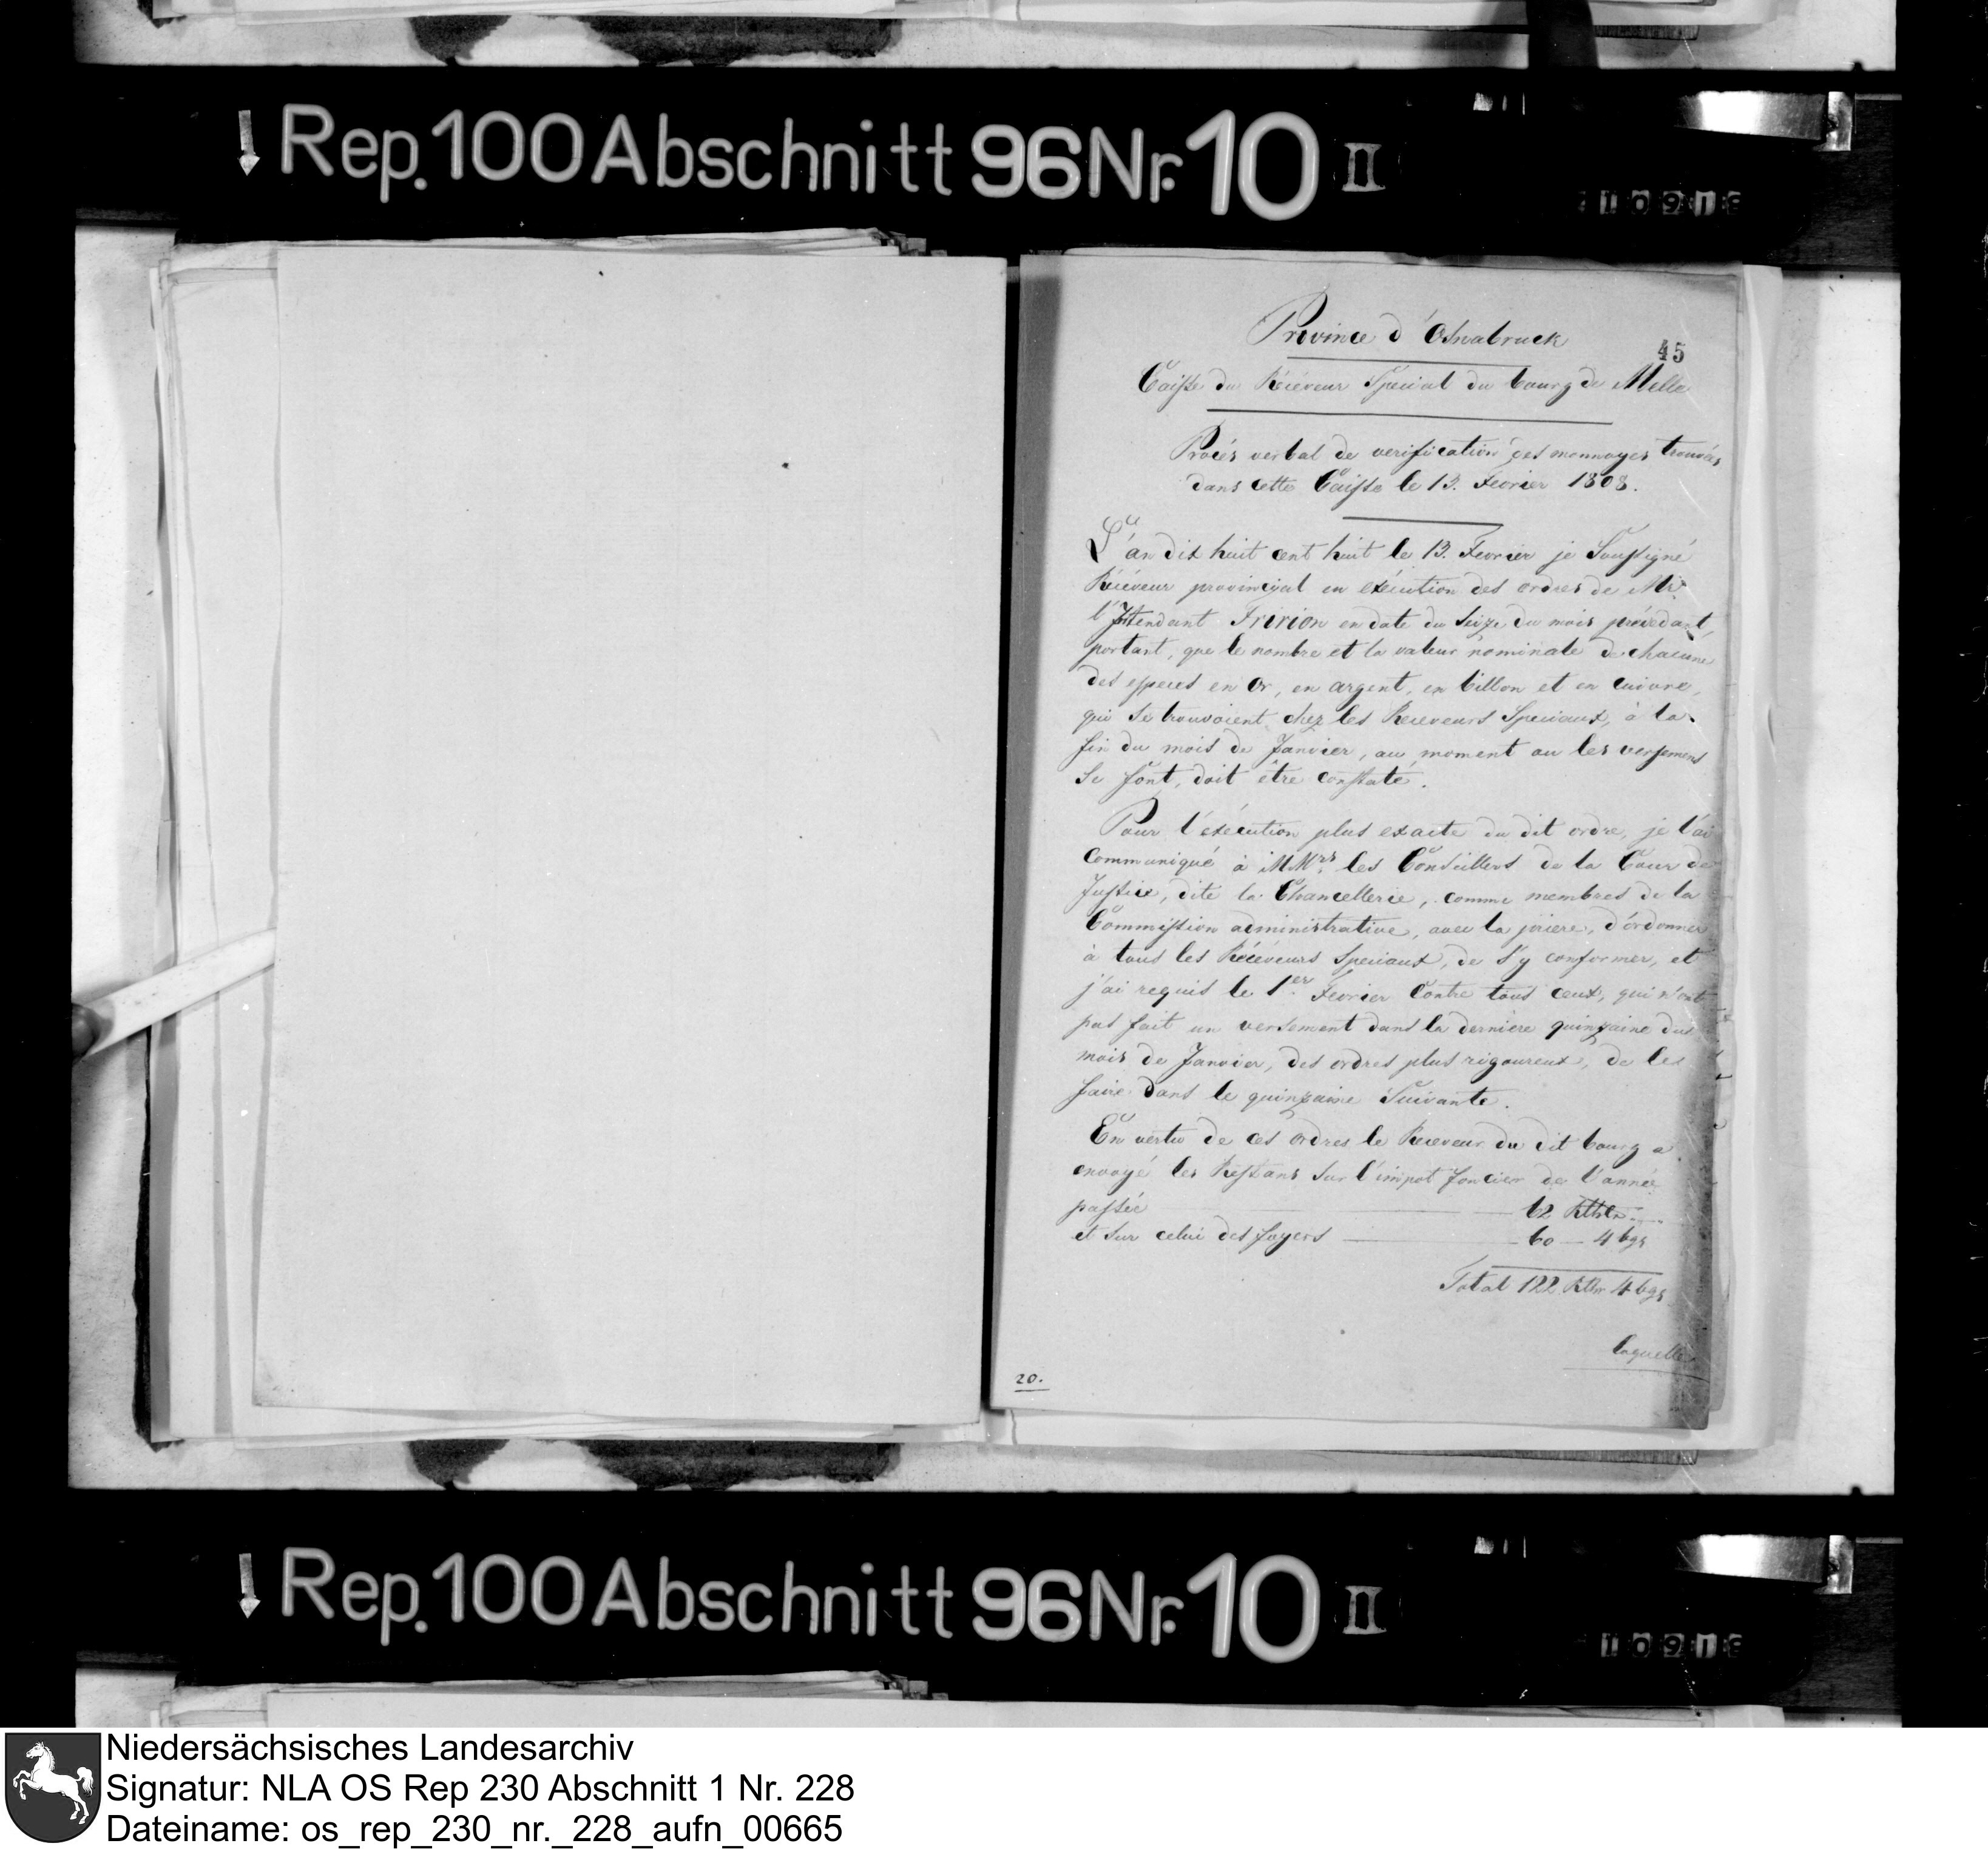 Rep. 100 Abschnitt 96 Nr. 10 II
10913
Province d'Osnabruck
45
Caisse du Réceveur Special du bourg de Melle
Procés verbal de verification des monnoyes trouvées
dans cette Caisse le 13. Fevrier 1808.
L'an dix huit cent huit le 13. Fevrier je Soussigné
Réceveur provincial en exécution des ordres de Mr.
l'Intendant Fririon en date du Seize du mois précédant,
portant, que le nombre et la valeur nominale de chacune
des especes en Or, en argent, en billon et en cuivre,
qui se trouvoient chez les Receveurs Speciaux, à la
fin du mois de Janvier, au moment ou les versemens
se font, doit être constaté.
Pour l'exécution plus exacte du dit ordre, je l'ai
communiqué à MMrs. les Conseillers de la Cour de
Justice, dite la Chancellerie, comme membres de la
Commission administrative, avec la prière, d'ordonner
à tous les Réceveurs Speciaux, de s'y conformer, et
j'ai requis le 1er. Fevrier Contre tous ceux, qui n'ont
pas fait un versement dans la dernière quinzaine du
mois de Janvier, des ordres plus rigoureux, de les
faire dans le quinzaine Suivante.
En vertu de ces ordres le Receveur du dit bourg a
envoyé les Restans sur l'impot foncier de l'année
passée 62 Rthlr.
et sur celui des foyers 60 4 bgs
Total 122 Rthr 4 bgs
laquelle
20.
Rep. 100 Abschnitt 96 Nr. 10 II
10913
Niedersächsisches Landesarchiv
Signatur: NLA OS Rep 230 Abschnitt 1 Nr. 228
Dateiname: os_rep_230_nr._228_aufn_00665